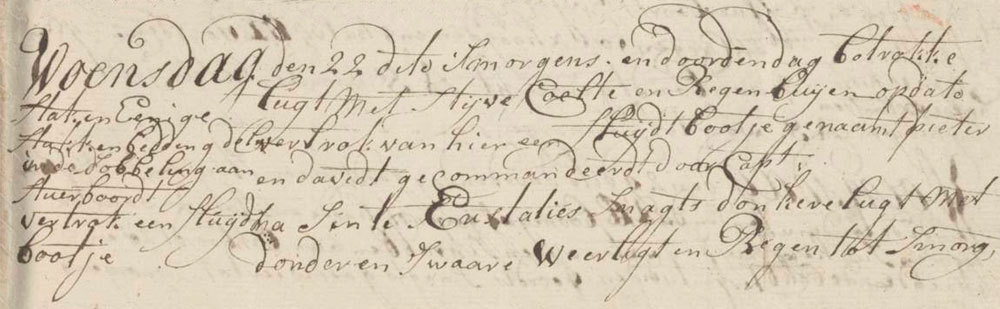 Woensdag den 22 dito Smorgens en doordendag betrokke
lugt Met Stijve Coelte en Regen buijen opdato
vertrok van hier een Stuijdt bootje genaamt pieter
en davidt gecommandeerdt door Capt:
na Sinte Eustaties Snagts donkere lugt Met
donder en Swaare Weerligt en Regen tot Smorg,
en Eenige
Stukken bedding
in de dobbeling aan
Stuerboordt
vertrok een Stuijd
bootje